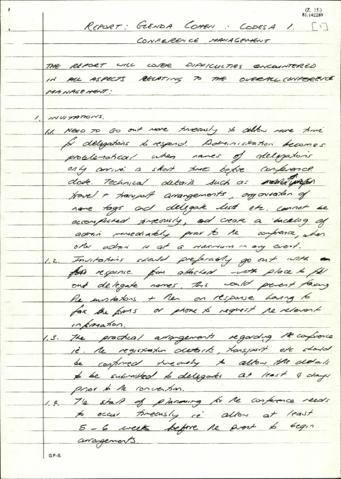 (Z. 15)
REPORT: GLENDA COHEN : CODESA 1. [1]
CONFERENCE MANAGEMENT
THE REPORT WILL COVER DIFFICULTIES ENCOUNTERED
IN ALL ASPECTS RELATING TO THE OVERALL CONFERENCE
MANAGEMENT:
1. INVITATIONS.
1.1. NEED TO GO out more timeously to allow more time
for delegations to respond. Administration becomes
problematical when names of delegations
only arrive a short time before conference
date. Technical details such as
travel + transport arrangements, organisation of
name tags and delegate lists etc. cannot be
accomplished timeously, and create a backlog of
admin immediately prior to the conference, when
other admin is at a maximum in any event.
1.2. Invitations should preferably go out with
response form attached with place to fill
out delegate names. This would prevent faxing
the invitations + then on response having to
fax the forms or phone to request the relevant
information.
1.3. The practical arrangements regarding the conference
ie. the registration details, transport etc should
be confirmed timeously to allow the details
to be submitted to delegates at least 4 days
prior to the convention.
1.4. The start of planning to the conference needs
to occur timeously ie allow at least
5 - 6 weeks before the event to begin
arrangements.
GP-S